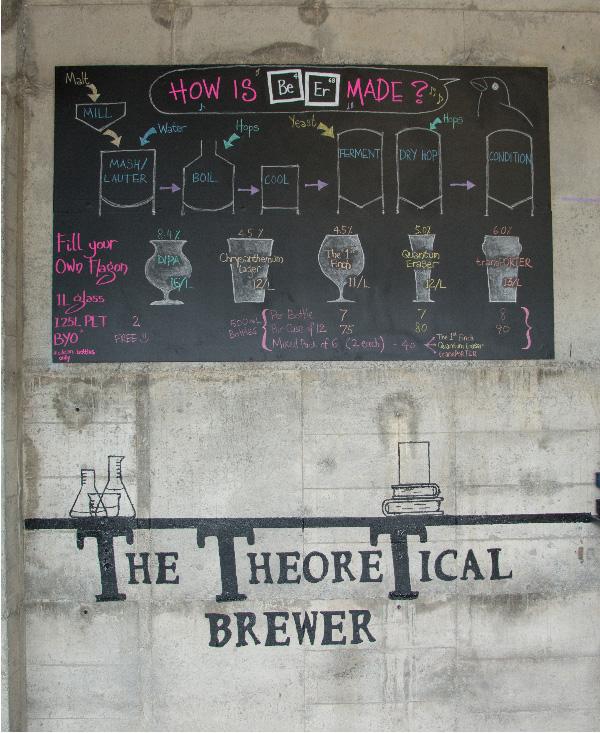 HOW IS Be Er MADE?
4
68
Malt
MILL
Water
Hops
Yeast
Hops
MASH/
LAUTER
BOIL
COOL
FERMENT
DRY HOP
CONDITION
8.4%
4.5%
4.5%
5.0%
6.0%
Fill your
Own Flagon
DIPA
15/L
Chrysanthemum
Laser
12/L
The 1st
Finch
11/L
Quantum
Eraser
12/L
transPORTER
13/L
1L glass
1.25L PET 2
BYO* FREE
*clean bottles
only
500mL
Bottles
Per Bottle 7 7 8
Per Case of 12 75 80 90
Mixed Pack of 6 (2 each) - 40
The 1st Finch
Quantum Eraser
transPORTER
THE THEORETICAL
BREWER